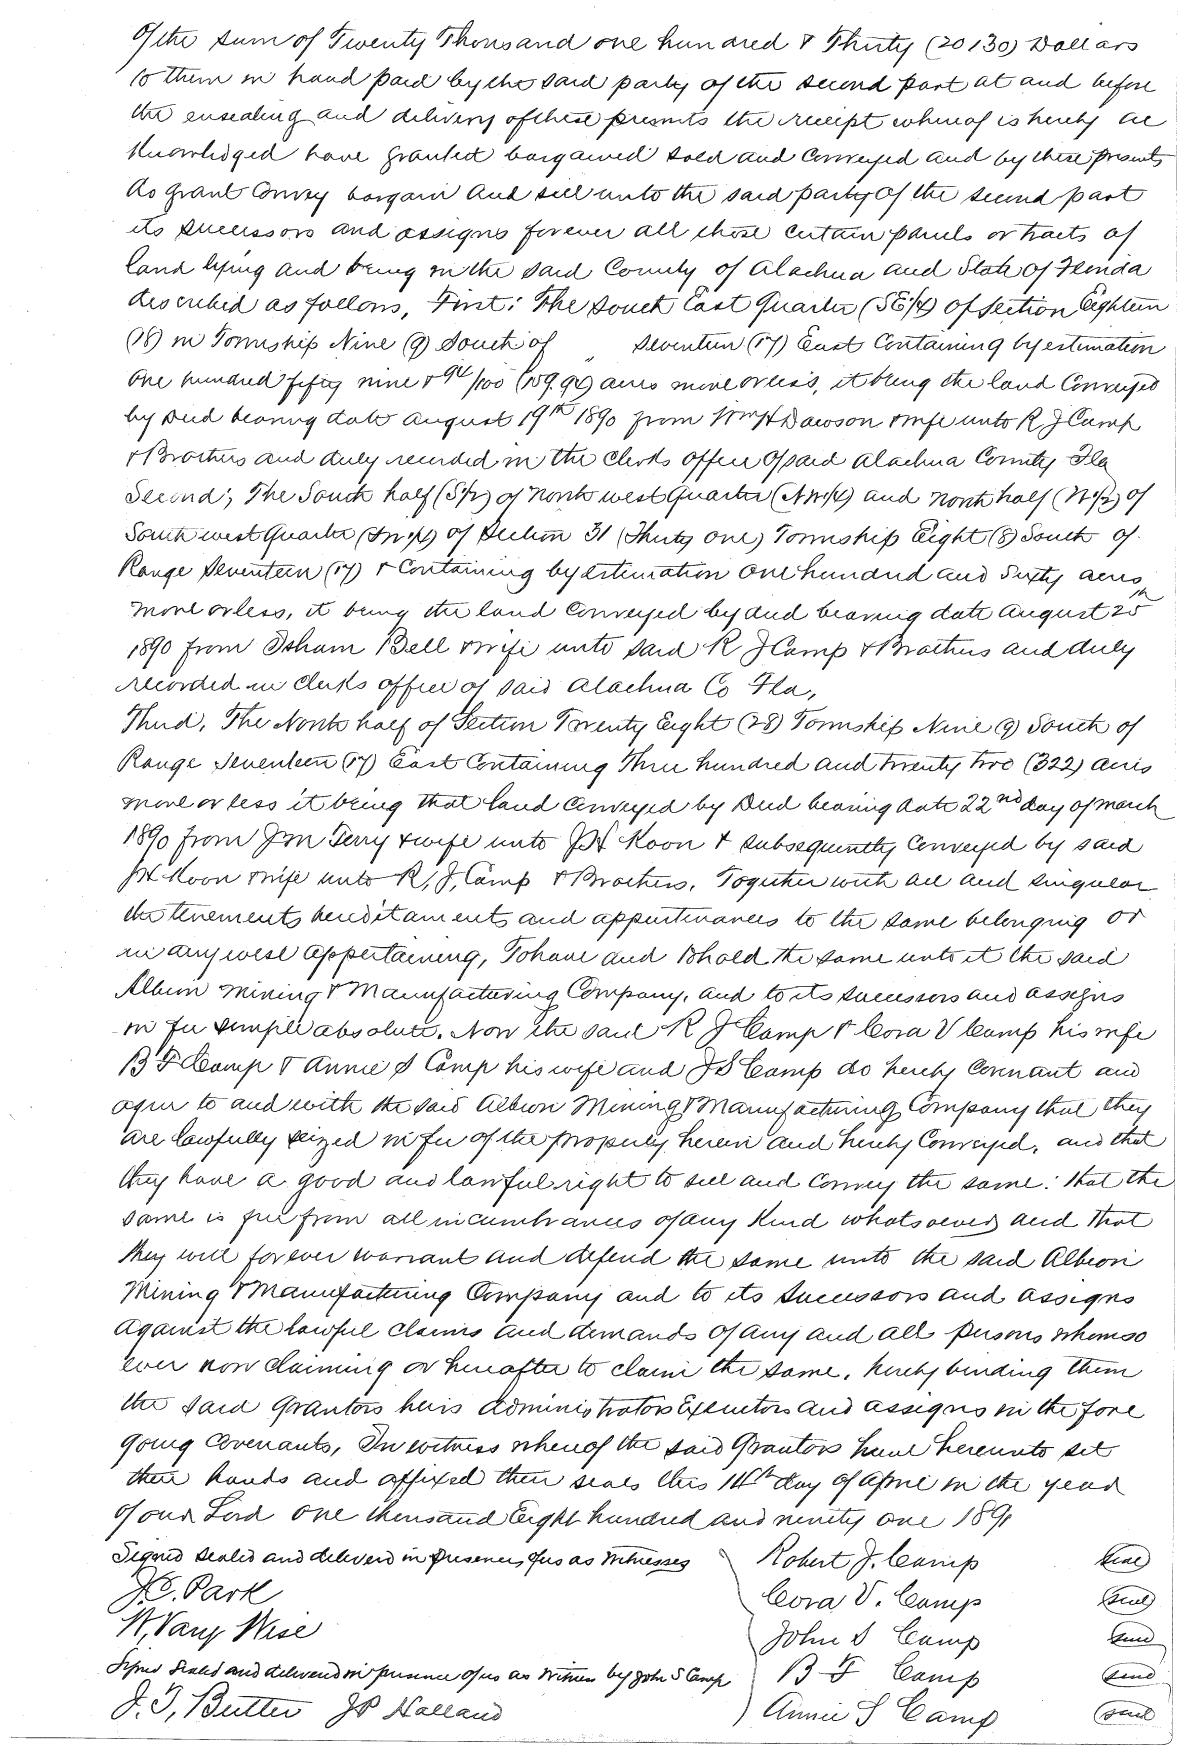 of the sum of Twenty Thousand one hundred & Thirty (20130) Dollars
to them in hand paid by the said party of the second part at and before
the ensealing and delivery of these presents the receipt whereof is hereby ac
knowledged have granted bargained sold and conveyed and by these presents
do grant convey bargain and sell unto the said party of the second part
its successors and assigns forever all those certain parcels or tracts of
land lying and being in the said County of Alachua and State of Florida
described as follows, First: The South East Quarter (SE1/4) of Section Eighteen
(18) in Township Nine (9) South of " Seventeen (17) East Containing by estimation
one hundred fifty nine & 94/100 (159.94) acres more or less, it being the land Conveyed
by Deed bearing date August 19th 1890 from Wm H Dawson & wife unto R J Camp
& Brothers and duly recorded in the Clerks office of said Alachua County Fla
Second; The South half (S1/2) of North west Quarter (NW1/4) and North half (N1/2) of
South west Quarter (SW1/4) of Section 31 (Thirty one) Township Eight (8) South of
Range Seventeen (17) & Containing by estimation one hundred and sixty acres
more or less, it being the land conveyed by deed bearing date August 25th
1890 from Isham Bell & wife unto said R J Camp & Brothers and duly
recorded in Clerks office of said Alachua Co Fla,
Third, The North half of Section Twenty Eight (28) Township Nine (9) South of
Range Seventeen (17) East Containing Three hundred and twenty two (322) acres
more or less it being that land conveyed by Deed bearing date 22nd day of March
1890 from Jm Terry & wife unto JH Koon & subsequently conveyed by said
JH Koon & wife unto R, J, Camp & Brothers. Together with all and singular
the tenements hereditaments and appurtenances to the same belonging or
in any wise appertaining, To have and to hold the same unto it the said
Albion Mining & Manufacturing Company, and to its successors and assigns
in fee simple absolute. Now the said R J Camp & Cora V Camp his wife
B F Camp & Annie S Camp his wife and J S Camp do hereby covenant and
agree to and with the said Albion Mining & Manufacturing Company that they
are lawfully seized in fee of the property herein and hereby Conveyed, and that
they have a good and lawful right to sell and convey the same: that the
same is free from all incumbrances of any kind whatsoever and that
they will forever warrant and defend the same unto the said Albion
Mining & Manufacturing Company and to its successors and assigns
against the lawful claims and demands of any and all persons whomso
ever now claiming or hereafter to claim the same, hereby binding them
the said grantors heirs administrators Executors and assigns in the fore
going covenants, In witness whereof the said Grantors have hereunto set
their hands and affixed their seals this 14th day of April in the year
of our Lord one thousand Eight hundred and ninety one 1891
Signed sealed and delivered in presence of us as witnesses Robert J. Camp seal
J.C. Park Cora V. Camp seal
W, Wise John S Camp seal
Signed Sealed and delivered in presence of us as witness by John S Camp B F Camp seal
J. T, Butler JP Halland Annie S Camp seal